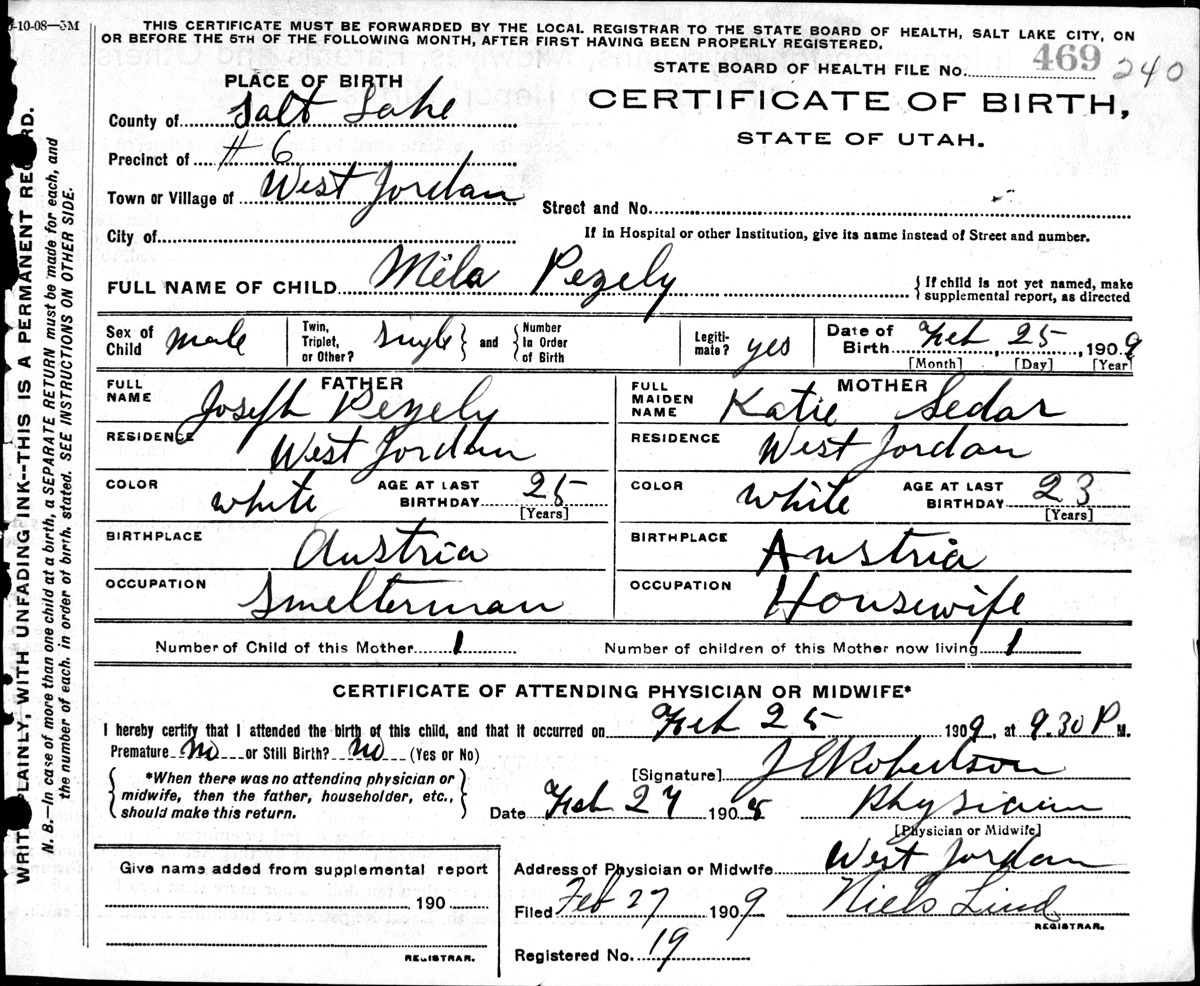 -10-08—5M
THIS CERTIFICATE MUST BE FORWARDED BY THE LOCAL REGISTRAR TO THE STATE BOARD OF HEALTH, SALT LAKE CITY, ON
OR BEFORE THE 5TH OF THE FOLLOWING MONTH, AFTER FIRST HAVING BEEN PROPERLY REGISTERED.
STATE BOARD OF HEALTH FILE NO. 469 240
CERTIFICATE OF BIRTH,
STATE OF UTAH.
PLACE OF BIRTH
County of Salt Lake
Precinct of # 6
Town or Village of West Jordan
Street and No.
City of
If in Hospital or other Institution, give its name instead of Street and number.
FULL NAME OF CHILD Mila Pezely
If child is not yet named, make
supplemental report, as directed
Sex of Child male
Twin, Triplet, or Other? single and Number In Order of Birth
Legiti-mate? yes
Date of Birth Feb 25, 1909
[Month] [Day] [Year]
FATHER
FULL NAME Joseph Pezely
RESIDENCE West Jordan
COLOR white AGE AT LAST BIRTHDAY 25
[Years]
BIRTHPLACE Austria
OCCUPATION Smelterman
MOTHER
FULL MAIDEN NAME Katie Sedar
RESIDENCE West Jordan
COLOR White AGE AT LAST BIRTHDAY 23
[Years]
BIRTHPLACE Austria
OCCUPATION Housewife
Number of Child of this Mother 1
Number of children of this Mother now living 1
CERTIFICATE OF ATTENDING PHYSICIAN OR MIDWIFE*
I hereby certify that I attended the birth of this child, and that it occurred on Feb 25 1909, at 9.30 P M.
Premature No or Still Birth? No (Yes or No)
*When there was no attending physician or
midwife, then the father, householder, etc.,
should make this return.
[Signature] J E Robertson
Date Feb 27 190
Physician
[Physician or Midwife]
Address of Physician or Midwife West Jordan
Filed Feb 27 1909 Niels Lind
REGISTRAR.
Registered No. 19
Give name added from supplemental report
190
REGISTRAR.
WRITE PLAINLY, WITH UNFADING INK--THIS IS A PERMANENT RECORD.
N. B.—In case of more than one child at a birth, a SEPARATE RETURN must be made for each, and
the number of each, in order of birth, stated. SEE INSTRUCTIONS ON OTHER SIDE.